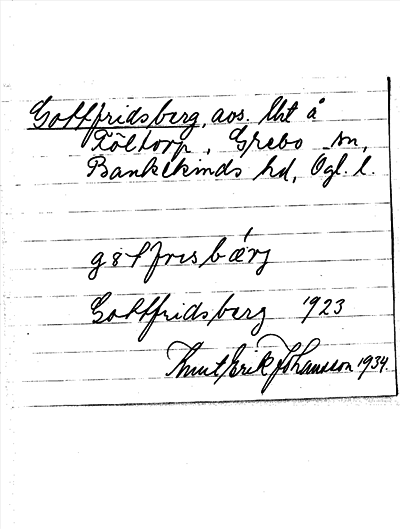 Gottfridsberg, avs. lht å
Föltorp, Grebo sn,
Bankekinds hd, Ögl. l.
Gottfridsberg 1923
Knut Erik Johansson 1934.